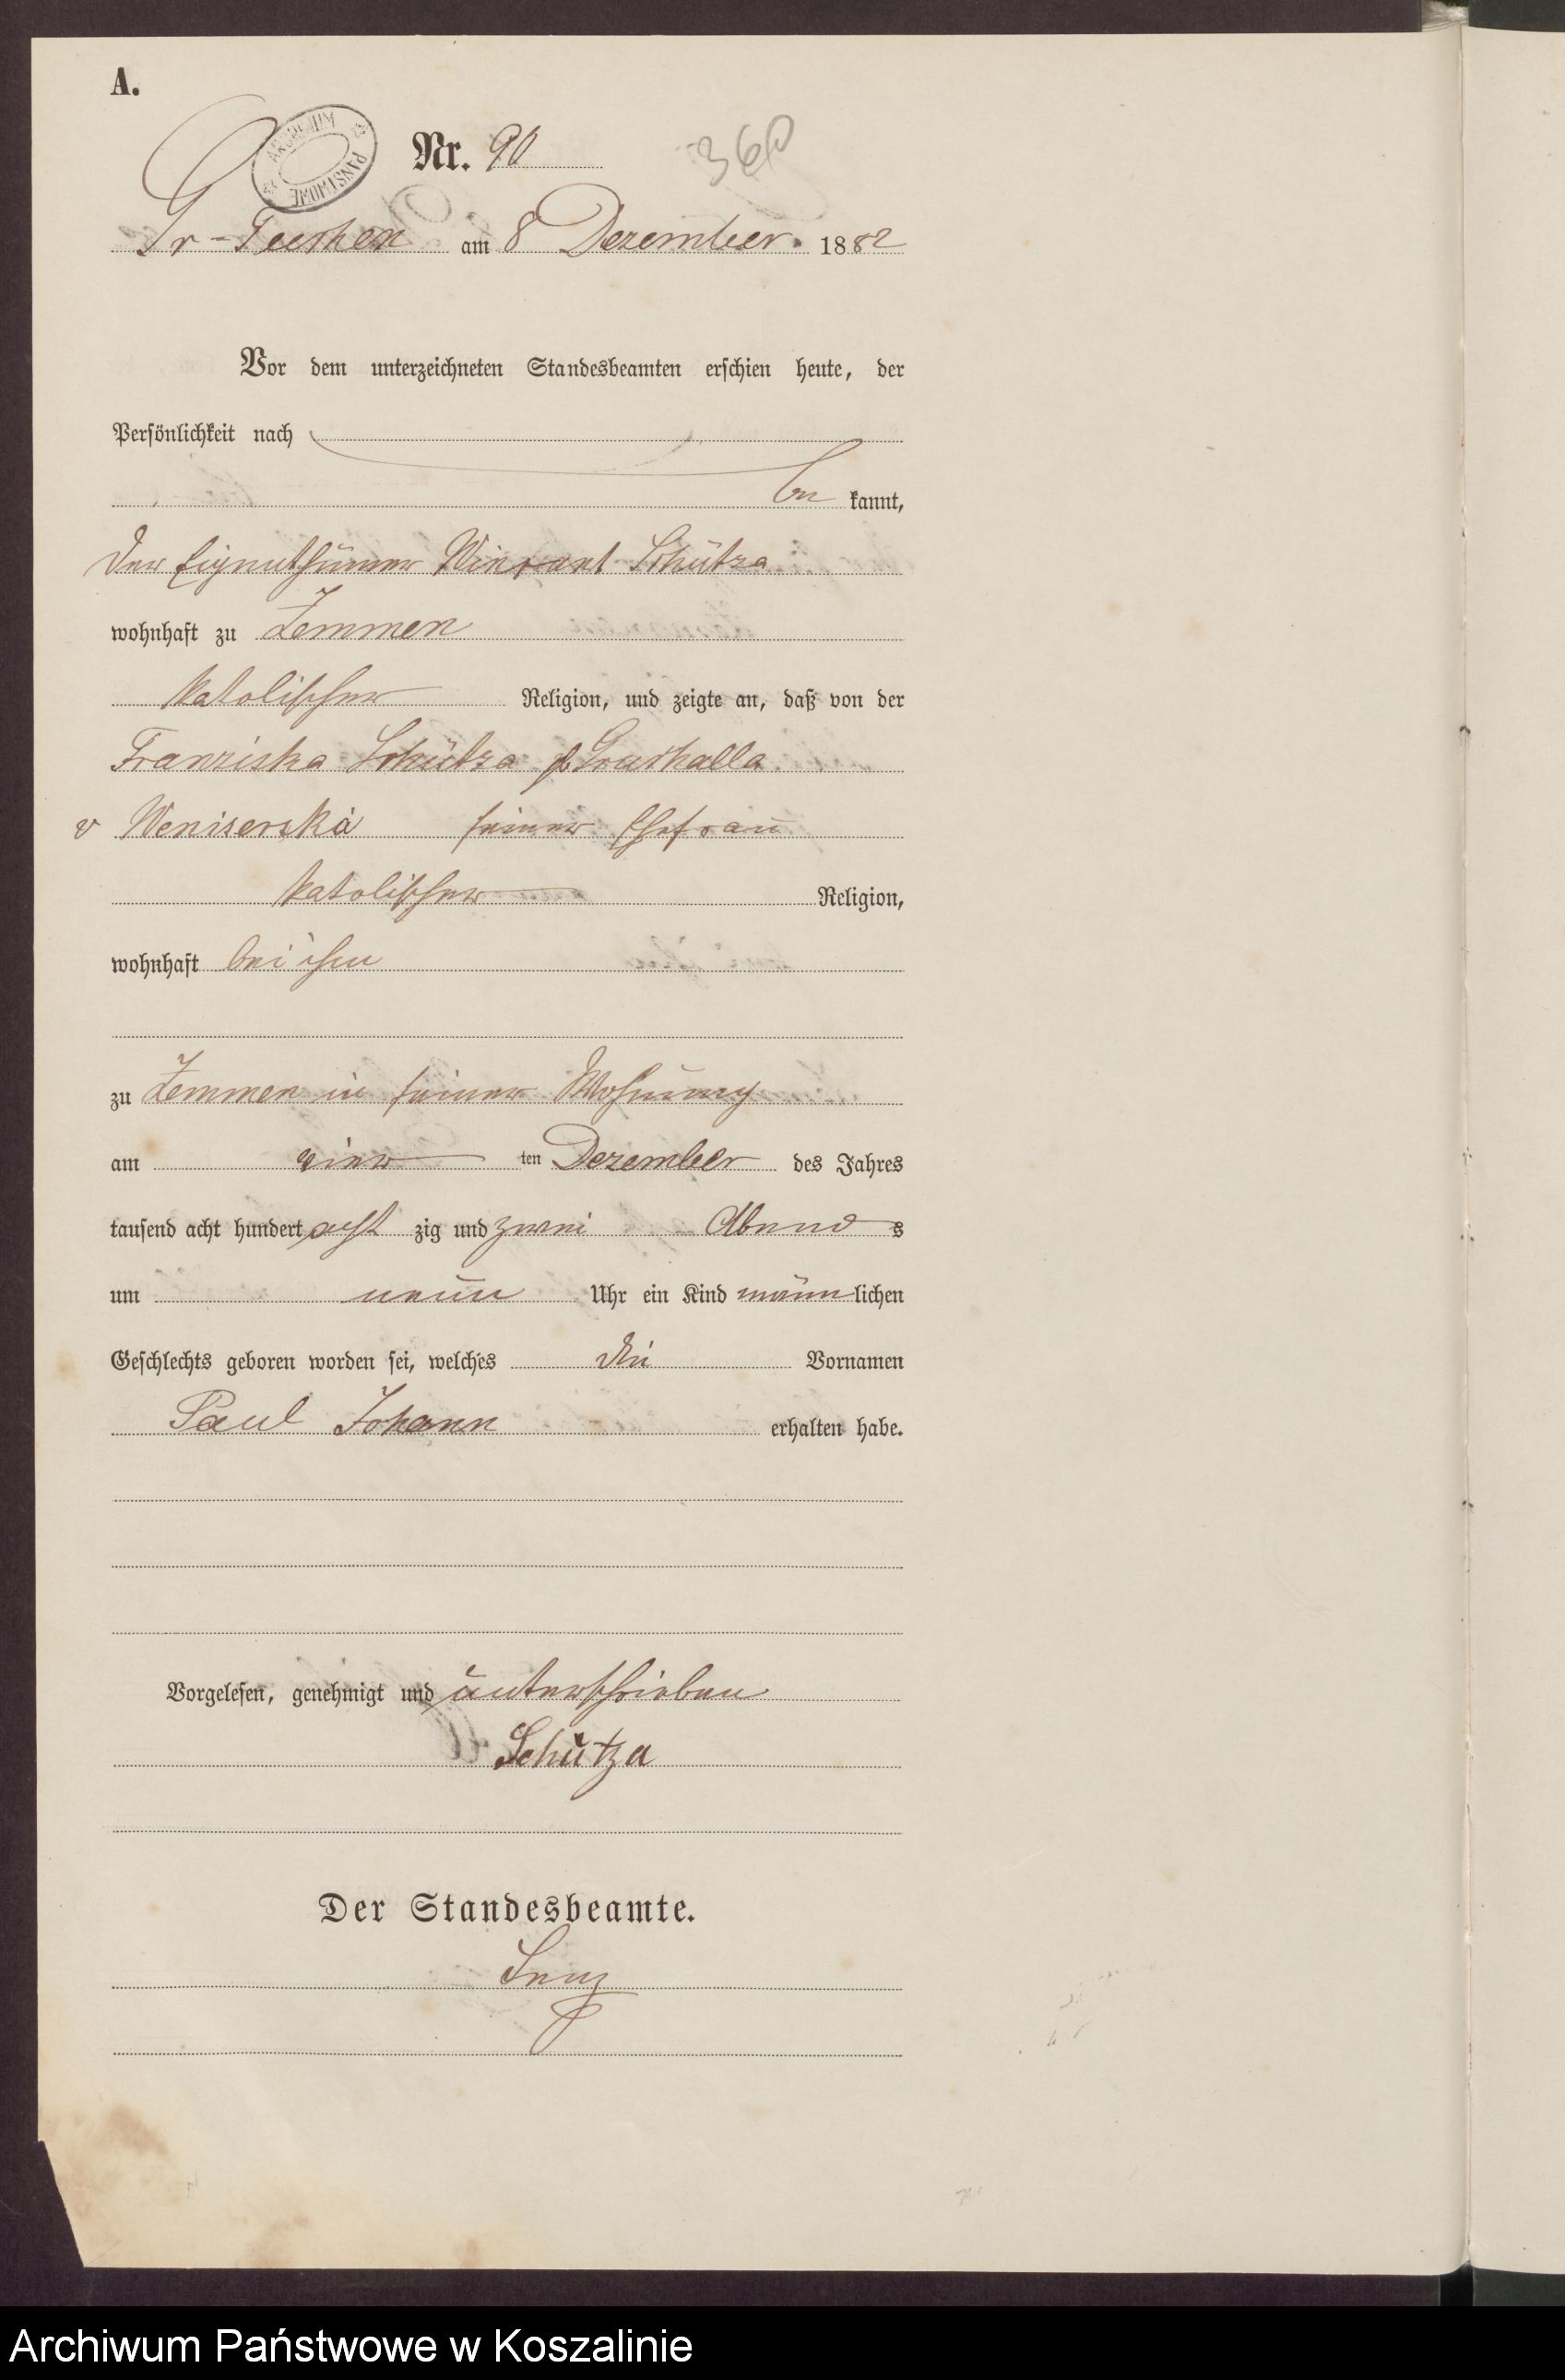 A.
ARCHIWUM PAŃSTWOWE
Nr. 90
360
Gr-Tuchen am 8 Dezember 1882
Vor dem unterzeichneten Standesbeamten erschien heute, der
Persönlichkeit nach
be kannt,
der Eigenthümer Vincent Schütza
wohnhaft zu Zemmen
katolischer Religion, und zeigte an, daß von der
Franziska Schütza
v seiner Ehefrau
katolischer Religion,
wohnhaft bei ihm
zu Zemmen in seiner Wohnung
am vier ten Dezember des Jahres
tausend acht hundert acht zig und zwei Abend s
um neun Uhr ein Kind männ lichen
Geschlechts geboren worden sei, welches die Vornamen
Paul Johann erhalten habe.
Vorgelesen, genehmigt und unterschrieben
Schütza
Der Standesbeamte.
Archiwum Państwowe w Koszalinie